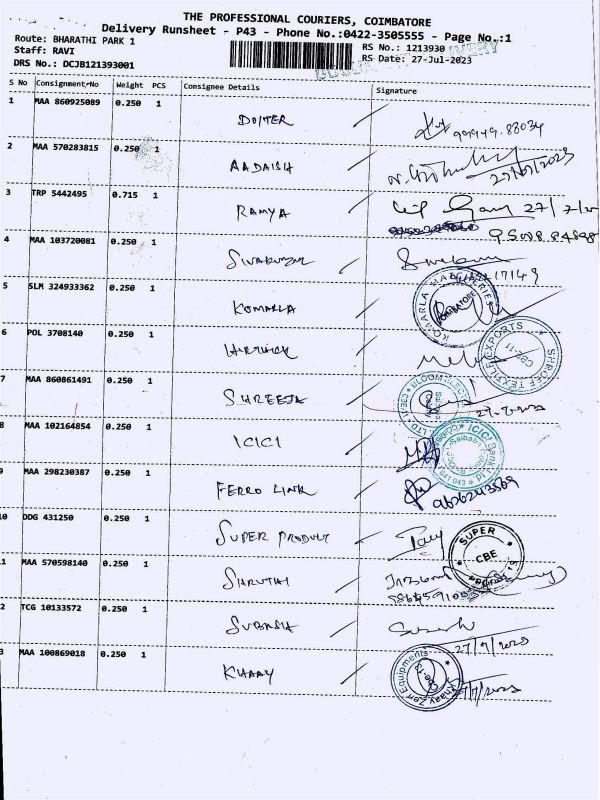 THE PROFESSIONAL COURIERS, COIMBATORE
Delivery Runsheet - P43 - Phone No.:0422-3505555 - Page No.:1
Route: BHARATHI PARK 1 RS No.: 1213930
Staff: RAVI RS Date: 27-Jul-2023
DRS No.: DCJB121393001
S No Consignment No Weight PCS Consignee Details Signature
1 MAA 860925089 0.250 1 DOITER 99949.88034
2 MAA 570283815 0.250 1 AADAISH 27/07/2023
3 TRP 5442495 0.715 1 RAMYA 27/7/2023
95008 84898
4 MAA 103720081 0.250 1 SIVAKUMAR
5 SLM 324933362 0.250 1 KOMARLA KOMARLA COIMBATORE
6 POL 3708140 0.250 1 HRITHICK SHROFF TEXTILE EXPORTS CBE-11
7 MAA 860861491 0.250 1 SHREEJA
8 MAA 102164854 0.250 1 ICICI ICICI Bank
9 MAA 298230387 0.250 1 FERRO LINK
10 DDG 431250 0.250 1 SUPER PRODUCT SUPER CBE
11 MAA 570598140 0.250 1 SHRUTHI
12 TCG 10133572 0.250 1 SUBASH 27/7/2023
13 MAA 100869018 0.250 1 KHAAY Khaay Zen Equipments